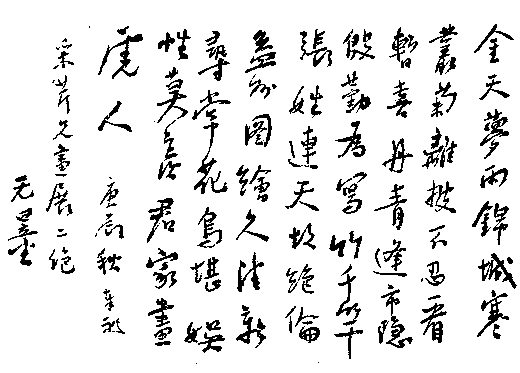 金天夢雨錦城寒
叢菊離披不忍看
暫喜丹青逢市隐
殷勤为寫竹千竿
張姓連天絕倫
益州圖繪久新
尋常花鳥堪娱
性莫忘君家畫
虎人
庚辰秋奉祝
采芹兄畫展二绝
无墨